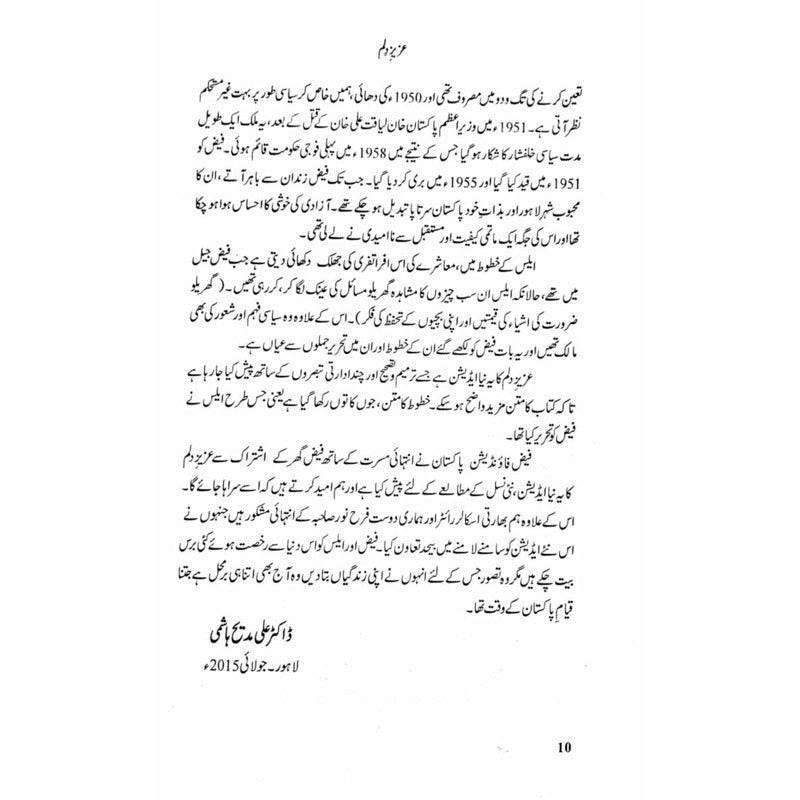 عزیزِ دلم
تعین کرنے کی تگ و دو میں مصروف تھی اور 1950ء کی دھائی، ہمیں خاص کر سیاسی طور پر بہت غیر مستحکم
نظر آتی ہے۔ 1951ء میں وزیرِ اعظم پاکستان خان لیاقت علی خان کے قتل کے بعد، یہ ملک ایک طویل
مدت سیاسی خلفشار کا شکار ہو گیا جس کے نتیجے میں 1958ء میں پہلی فوجی حکومت قائم ہوئی۔ فیض کو
1951ء میں قید کیا گیا اور 1955ء میں بری کر دیا گیا۔ جب تک فیض زندان سے باہر آتے، ان کا
محبوب شہر لاہور اور بذاتِ خود پاکستان سر تا پا تبدیل ہو چکے تھے۔ آزادی کی خوشی کا احساس ہوا ہو چکا
تھا اور اس کی جگہ ایک ماتمی کیفیت اور مستقبل سے نا امیدی نے لے لی تھی۔
ایلس کے خطوط میں، معاشرے کی اس افراتفری کی جھلک دکھائی دیتی ہے جب فیض جیل
میں تھے، حالانکہ ایلس ان سب چیزوں کا مشاہدہ گھریلو مسائل کی عینک لگا کر، کر رہی تھیں۔ (گھریلو
ضرورت کی اشیاء کی قیمتیں اور اپنی بچیوں کے تحفظ کی فکر)۔ اس کے علاوہ وہ سیاسی فہم اور شعور کی بھی
مالک تھیں اور یہ بات فیض کو لکھے گئے ان کے خطوط اور ان میں تحریر جملوں سے عیاں ہے۔
عزیزِ دلم کا یہ نیا ایڈیشن ہے جسے ترمیم و تصحیح اور چند ادارتی تبصروں کے ساتھ پیش کیا جا رہا ہے
تا کہ کتاب کا متن مزید واضح ہو سکے۔ خطوط کا متن، جوں کا توں رکھا گیا ہے یعنی جس طرح ایلس نے
فیض کو تحریر کیا تھا۔
فیض فاؤنڈیشن پاکستان نے انتہائی مسرت کے ساتھ فیض گھر کے اشتراک سے عزیزِ دلم
کا یہ نیا ایڈیشن، نئی نسل کے مطالعے کے لئے پیش کیا ہے اور ہم امید کرتے ہیں کہ اسے سراہا جائے گا۔
اس کے علاوہ ہم بھارتی اسکالر رائٹر اور ہماری دوست فرح نور صاحبہ کے انتہائی مشکور ہیں جنہوں نے
اس نئے ایڈیشن کو سامنے لانے میں بیحد تعاون کیا۔ فیض اور ایلس کو اس دنیا سے رخصت ہوئے کئی برس
بیت چکے ہیں مگر وہ تصور جس کے لئے انہوں نے اپنی زندگیاں بتا دیں وہ آج بھی اتنا ہی بر محل ہے جتنا
قیامِ پاکستان کے وقت تھا۔
ڈاکٹر علی مدیح ہاشمی
لاہور۔ جولائی 2015ء
10